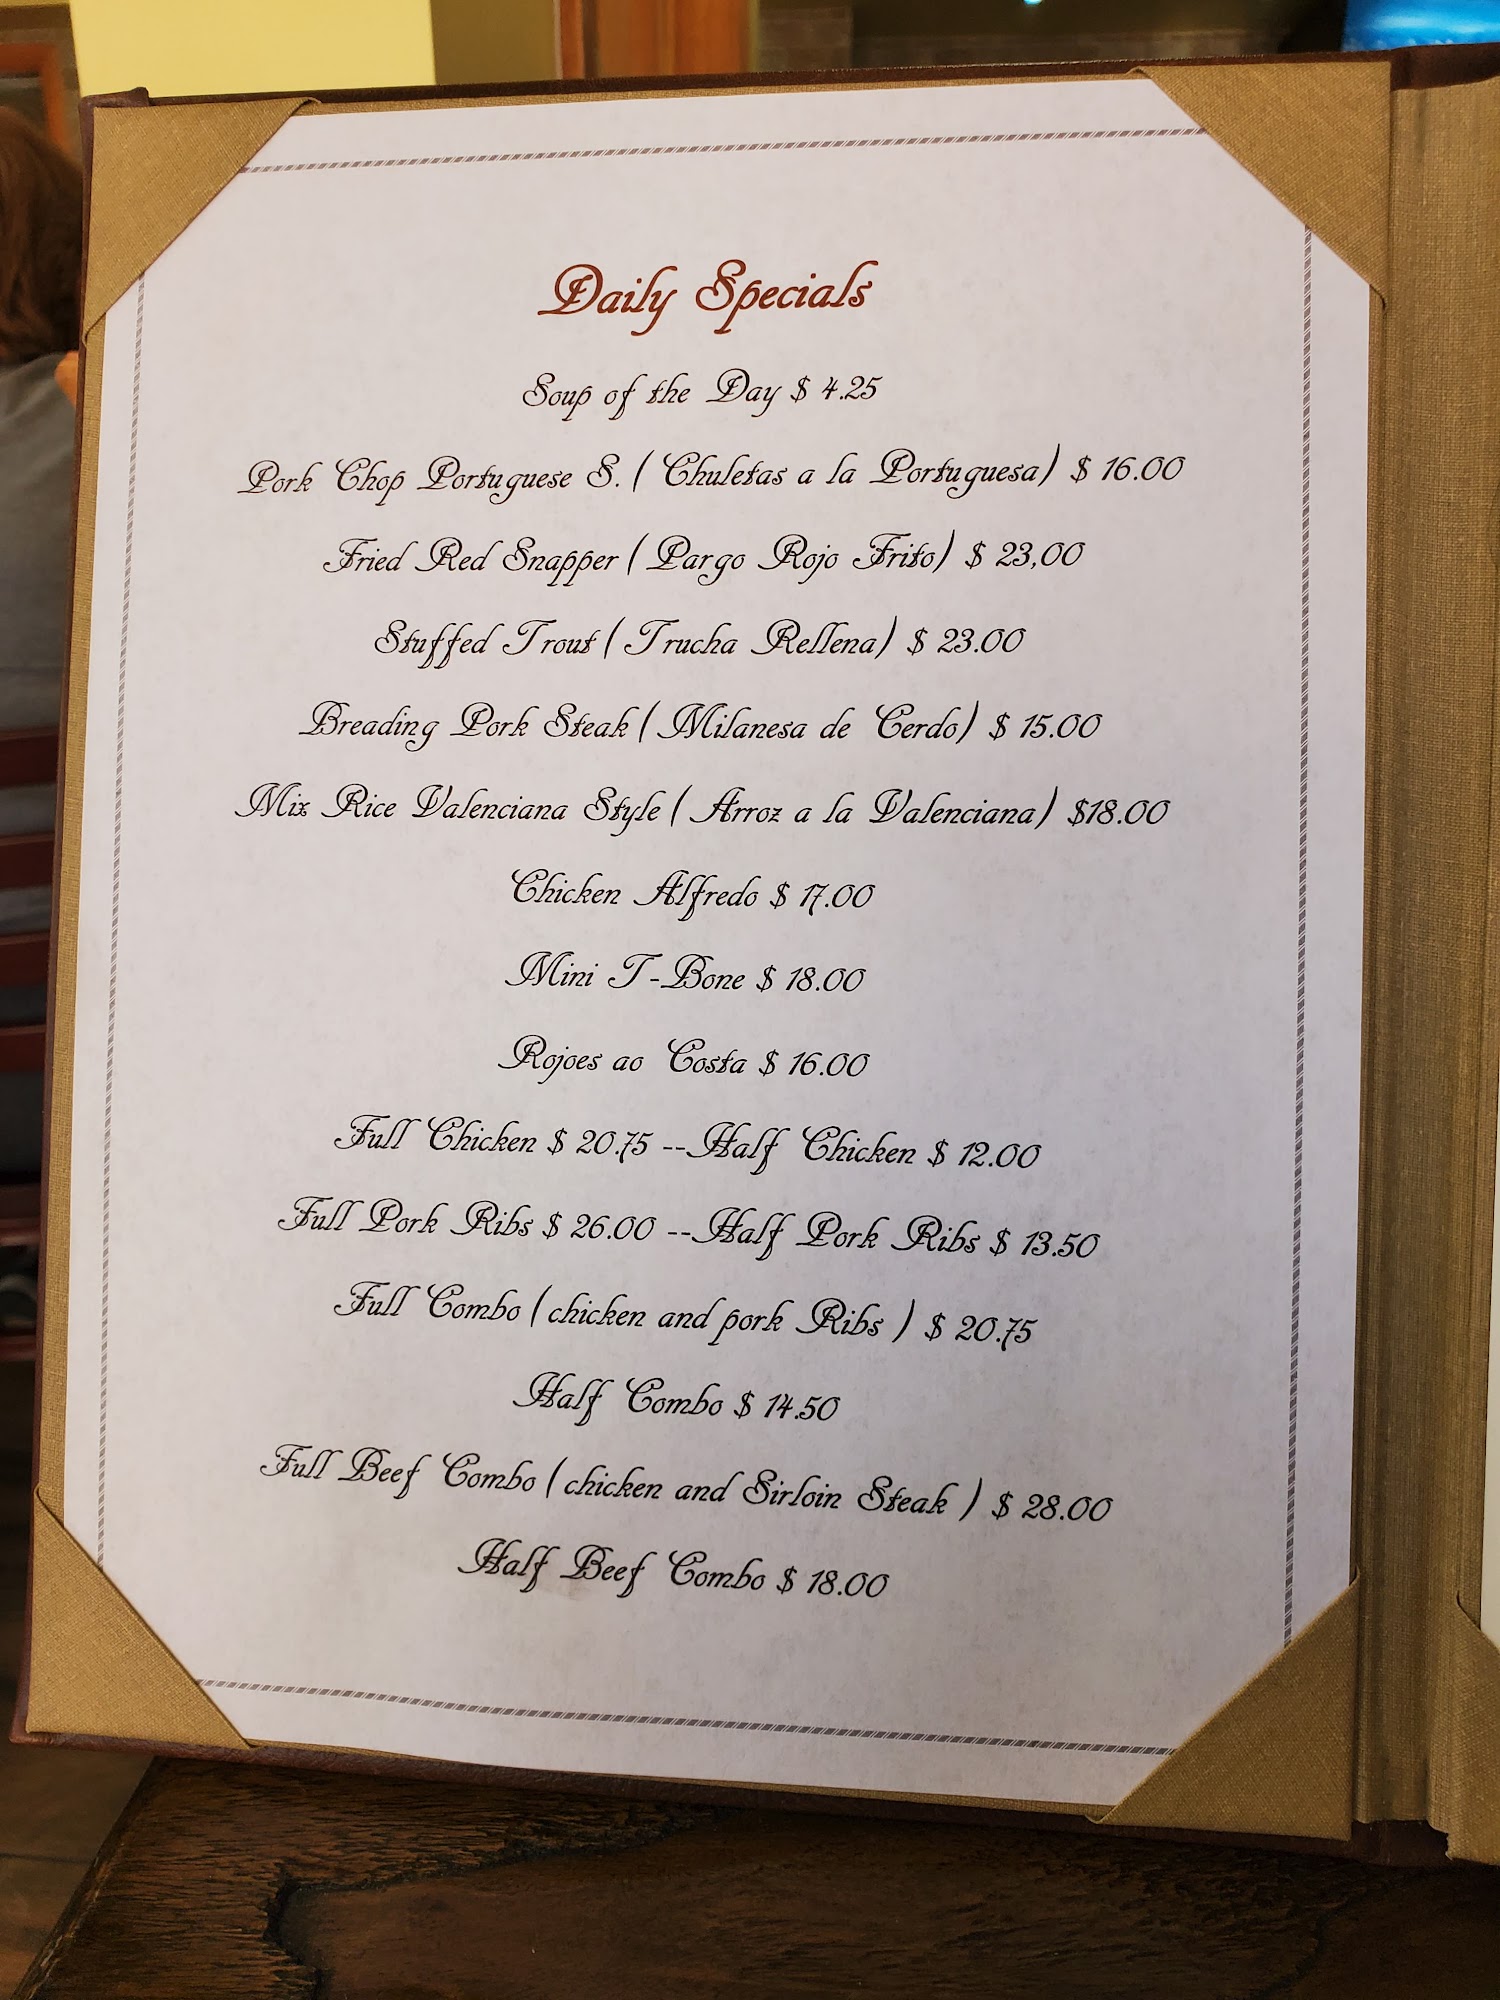 Daily Specials
Soup of the Day $ 4.25
Pork Chop Portuguese S. ( Chuletas a la Portuguesa) $ 16.00
Fried Red Snapper ( Pargo Rojo Frito) $ 23,00
Stuffed Trout ( Trucha Rellena) $ 23.00
Breading Pork Steak ( Milanesa de Cerdo) $ 15.00
Mix Rice Valenciana Style ( Arroz a la Valenciana) $18.00
Chicken Alfredo $ 17.00
Mini T-Bone $ 18.00
Rojoes ao Costa $ 16.00
Full Chicken $ 20.75 --Half Chicken $ 12.00
Full Pork Ribs $ 26.00 --Half Pork Ribs $ 13.50
Full Combo ( chicken and pork Ribs ) $ 20.75
Half Combo $ 14.50
Full Beef Combo ( chicken and Sirloin Steak ) $ 28.00
Half Beef Combo $ 18.00